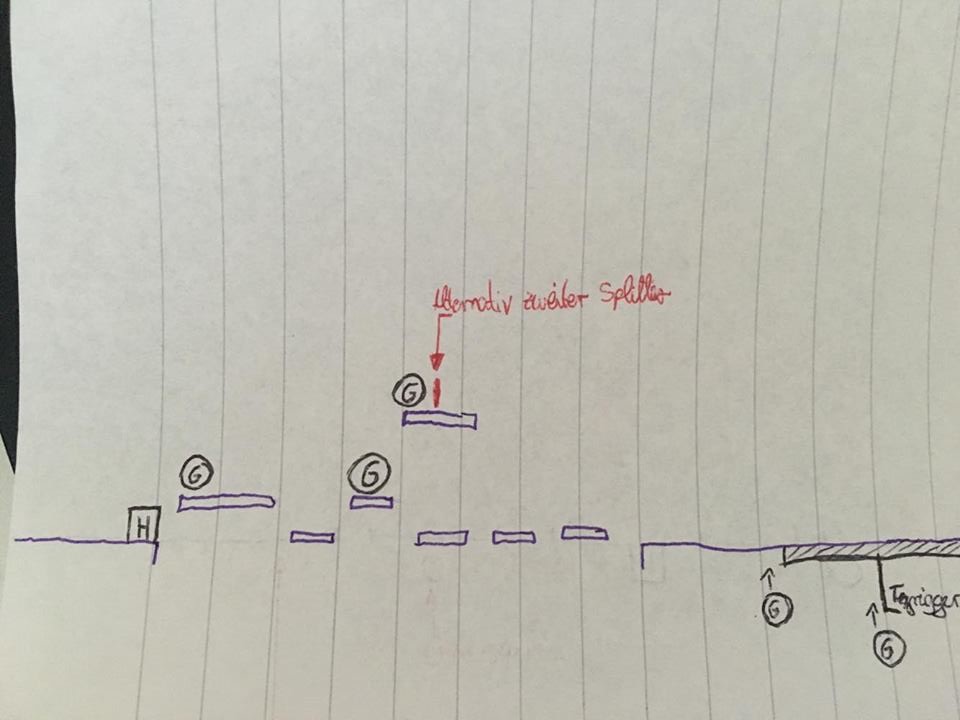 Alternativ zweiter Splitter
G
G
G
H
G
G